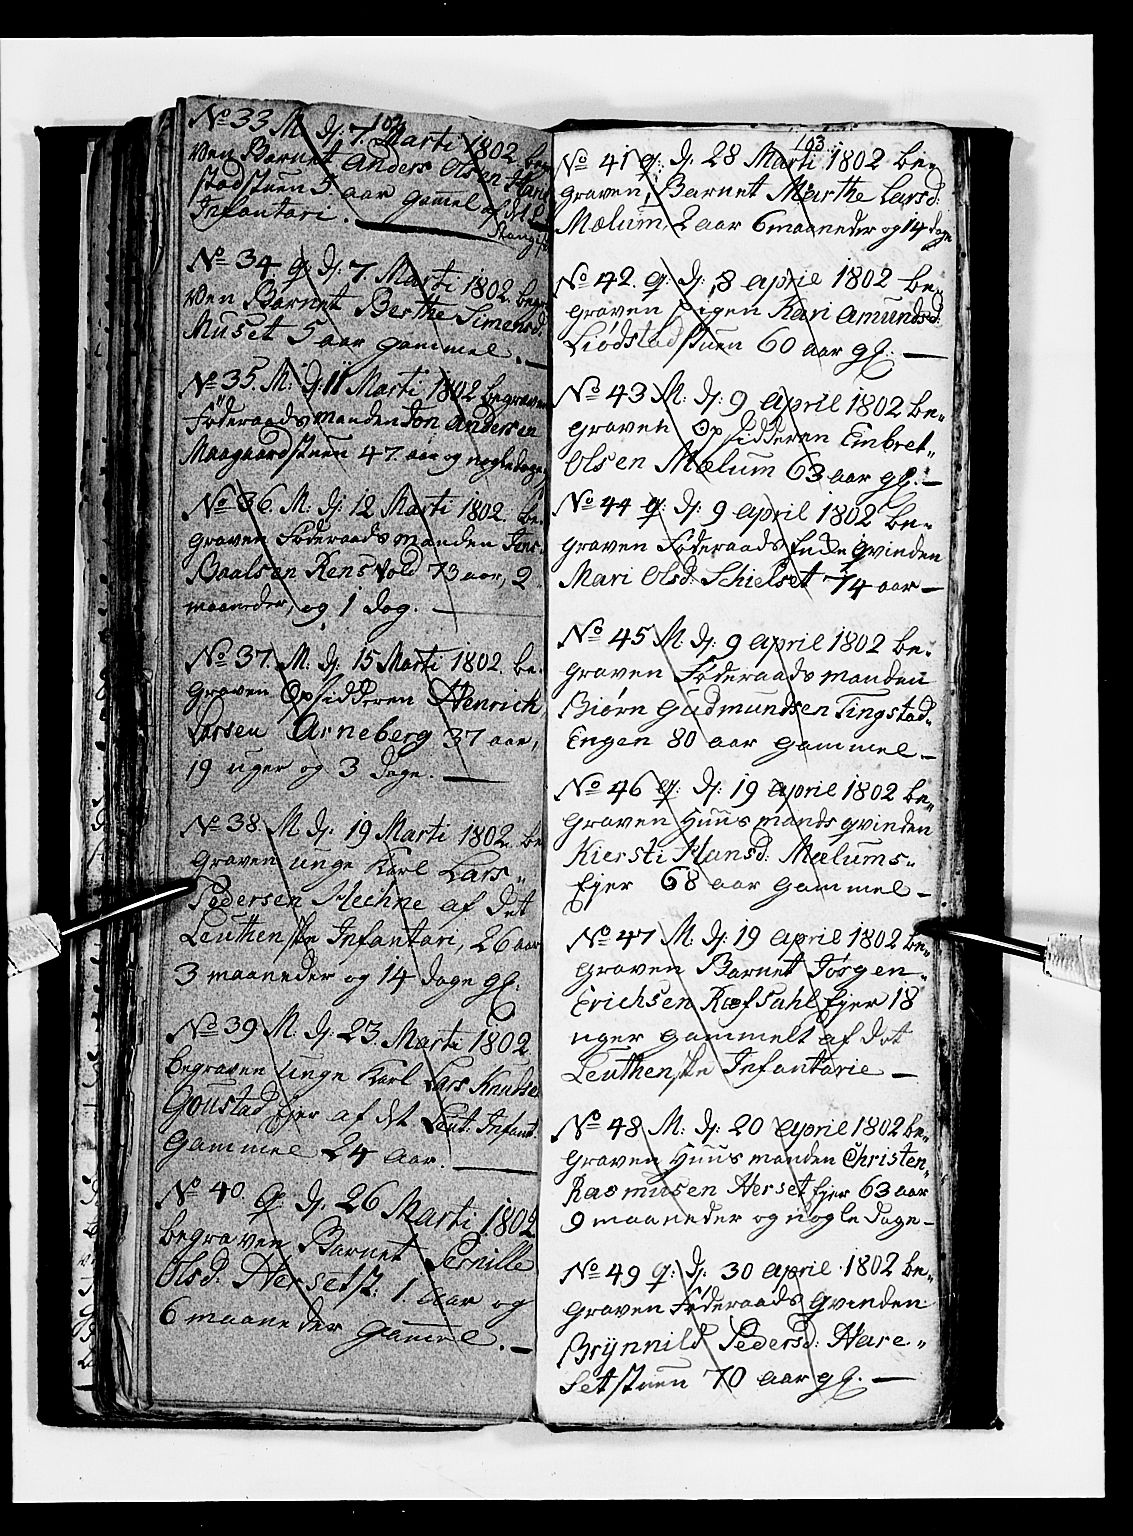 102
No 33 M. dj: 7. Marti 1802. begra
ven Barnet Anders Olsen
stadstuen 5 aar gamel af det
Infantari.
No 34 q: dj: 7. Marti 1802. begra
ven Barnet Berthe Simensd:
Muset 5 aar gammel.
No 35. M: dj: 11 Marti 1802 begraven
Föderaadsmanden Jon Andersen
Maagaardstuen 47 aar og nogle dage
No 36. M. dj. 12 Marti 1802. be-
graven Föderaadsmanden Jens
Baalsen Rensvold 73 aar, 2
maaneder, og 1 dag.
No 37. M. dj. 15 Marti 1802. be-
graven Opsidderen Henrich
Larsen Arneberg 37 aar,
19 uger og 3 dage.
No 38 M dj. 19 Marti 1802. be
graven unge Karl Lars-
Pedersen af det
Leuthenske Infantari, 26 aar
3 maaneder og 14 dage gl.
No 39 M. dj. 23. Marti 1802
begraven unge Karl Lars Knudse
Goustad Ejer af dt Leut: Infant.
gammel 24 aar.
No 40. q dj. 26 Marti 1802
begraven Barnet Pernille
Olsd: Hersetst. 1. aar og
6 maaneder gammel.
103
No 41 q: dj. 28 Marti 1802 be-
graven Barnet Marthe Larsd:
Mælum, 2 aar 6 maaneder og 14 dage
No 42. q: dj: 8 april 1802 be-
graven Pigen Kari Amundsd:
Liödstadstuen 60 aar gl.
No 43 M: dj: 9 april 1802 be-
graven Opsidderen Embret-
Olsen Mælum 63 aar gl.
No 44 q: dj: 9 april 1802 be-
graven Föderaads Enke qvinden
Mari Olsd: Schielset 74 aar
No 45 M: dj: 9 april 1802 be-
graven Föderaads manden
Biørn Gudmundsen Tingstad-
Engen 80 aar gammel
No 46 q: dj: 19 april 1802 be-
graven Huusmands qvinden
Kiersti Hansd: Mælums-
Ejer 68 aar gammel
No 47 M: dj: 19 april 1802 be-
graven Barnet Jørgen
Erichsen Ræfsahl Ejer 18
uger gammelt af det
Leuthenske Infantarie
No 48 M: dj: 20 april 1802 be-
graven Huusmanden Christen-
Rasmusen Herset Ejer 63 aar
9 maaneder og nogle dage
No 49 q: dj: 30 april 1802 be-
graven Föderaads qvinden
Brynnild Pedersd: Hare-
setstuen 70 aar gl.